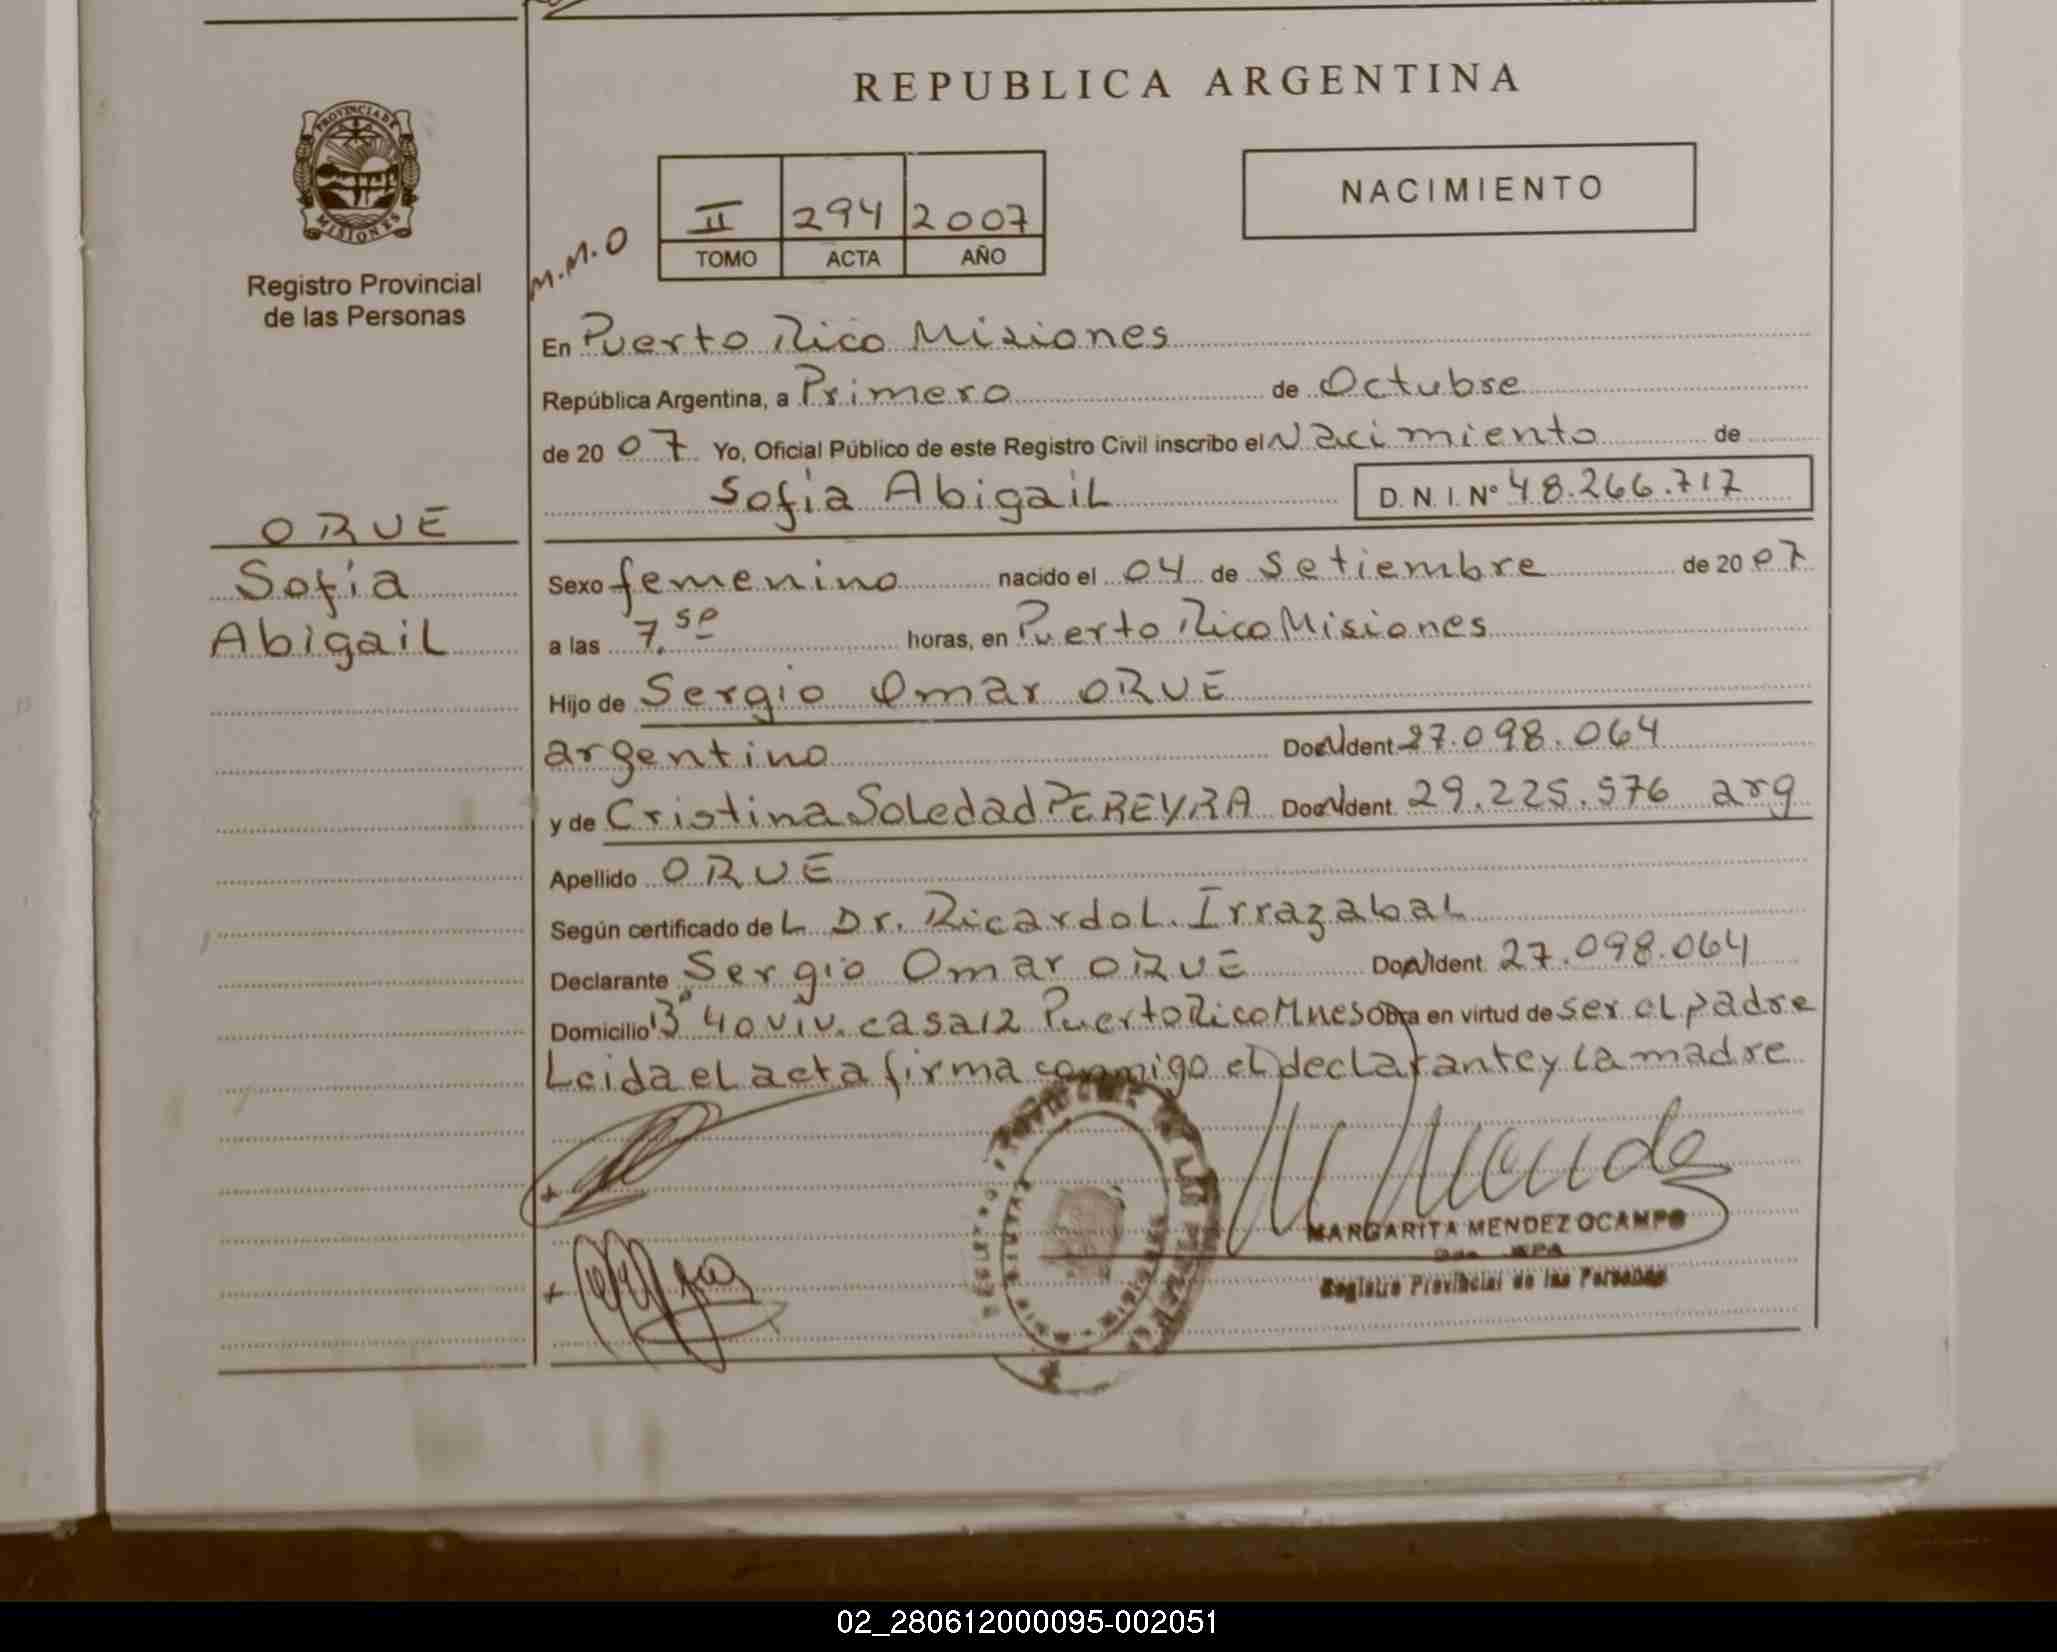 REPUBLICA ARGENTINA
PROVINCIA DE
MISIONES
Registro Provincial
de las Personas
M.M.O
II 294 2007
TOMO ACTA AÑO
NACIMIENTO
En Puerto Rico Misiones
República Argentina, a Primero de Octubre
de 20 07 Yo, Oficial Público de este Registro Civil inscribo el Nacimiento de
Sofia Abigail D.N.I. N° 48.266.717
ORUE
Sofía
Abigail
Sexo femenino nacido el 04 de Setiembre de 20 07
a las 7.50 horas, en Puerto Rico Misiones
Hijo de Sergio Omar ORUE
argentino Doc. Ident. 27.098.064
y de Cristina Soledad PEREYRA Doc. Ident. 29.225.576 arg
Apellido ORUE
Según certificado de L Dr. Ricardo L. Irrazabal
Declarante Sergio Omar ORUE Doc. Ident. 27.098.064
Domicilio B° 40 viv. casa 12 Puerto Rico Mnes Obra en virtud de ser el padre
Leida el acta firma conmigo el declarante y la madre
MARGARITA MENDEZ OCAMPO
Registro Provincial de las Personas
02_280612000095-002051